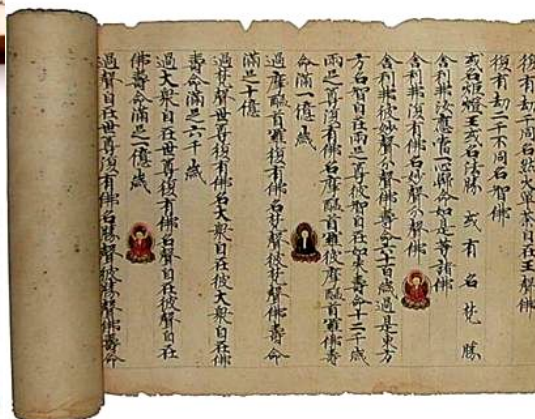 復有劫千同名然火單荼自在王聲佛
復有劫二千不同名智佛
或名炬燈王或名法勝 或有名梵勝
舍利弗汝應當一心歸命如是等諸佛
舍利弗復有佛名妙聲分聲佛
舍利弗彼妙聲分聲佛壽命六十百歲過是東方
方名智自在雨足尊彼智自在如來壽命十二千歲
雨足尊復有佛名摩醯首羅彼摩醯首羅佛壽
命滿一億歲
過摩醯首羅復有佛名梵聲彼梵聲佛壽命
滿足十億
過梵聲世尊復有佛名大衆自在彼大衆自在佛
壽命滿足六千歲
過大衆自在世尊復有佛名聲自在彼聲自在
佛壽命滿足一億歲
過聲自在世尊復有佛名勝聲彼勝聲佛壽命